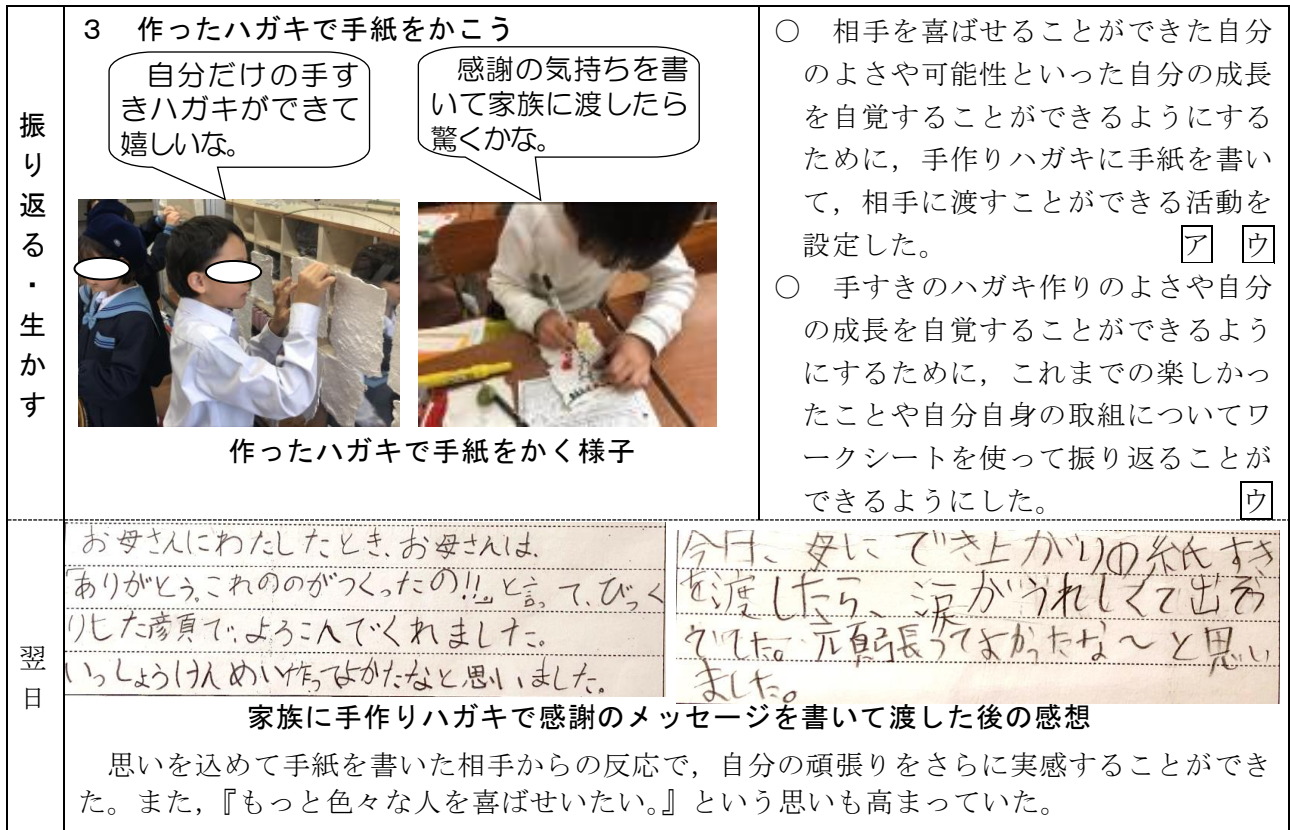 振り返る・生かす
3 作ったハガキで手紙をかこう
自分だけの手す
きハガキができて
嬉しいな。
感謝の気持ちを書
いて家族に渡したら
驚くかな。
作ったハガキで手紙をかく様子
○ 相手を喜ばせることができた自分
のよさや可能性といった自分の成長
を自覚することができるようにする
ために，手作りハガキに手紙を書い
て，相手に渡すことができる活動を
設定した。 ア ウ
○ 手すきのハガキ作りのよさや自分
の成長を自覚することができるよう
にするために，これまでの楽しかっ
たことや自分自身の取組についてワ
ークシートを使って振り返ることが
できるようにした。 ウ
翌日
お母さんにわたしたとき、お母さんは、
「ありがとう。これののがつくったの!!」と言って、びっく
りした顔で、よろこんでくれました。
いっしょうけんめい作ってよかたなと思いました。
今日、母に でき上がりの紙すき
を渡したら、涙がうれしくて出そう
でした。頑張ってよかったな〜と思い
ました。
家族に手作りハガキで感謝のメッセージを書いて渡した後の感想
思いを込めて手紙を書いた相手からの反応で，自分の頑張りをさらに実感することができ
た。また，『もっと色々な人を喜ばせいたい。』という思いも高まっていた。